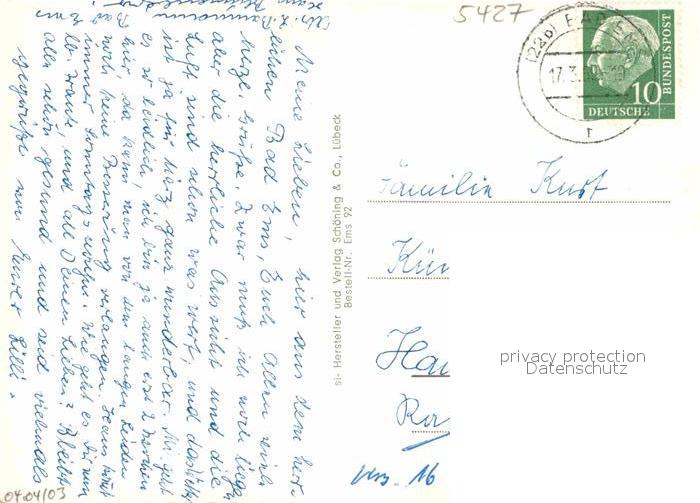 5427
(22b) BAD EMS
17.3.
10
DEUTSCHE
BUNDESPOST
Meine Lieben, hier aus dem herr-
lichen Bad Ems, Euch Allen viele
Grüße. Zwar muß ich noch liegen
aber die herrliche Aussicht und die
Luft sind schon was wert, und
ist ja für März ganz wunderbar. Mir geht
es so leidlich, ich bin ja auch erst 2 Wochen
hier, da kann man von dem langen Leiden
noch keine Besserung verlangen. Hans kommt
immer Sonntags Wie geht es Dir nun
lb. und all Deinen Lieben? Bleibt
alle schön gesund und seid vielmals
gegrüßt von Eurer Lilli.
si- Hersteller und Verlag Schöning & Co., Lübeck
Bestell-Nr. Ems 92
Familie Kurt
Kün
Hau
Ra
16
privacy protection
Datenschutz
04.04/03